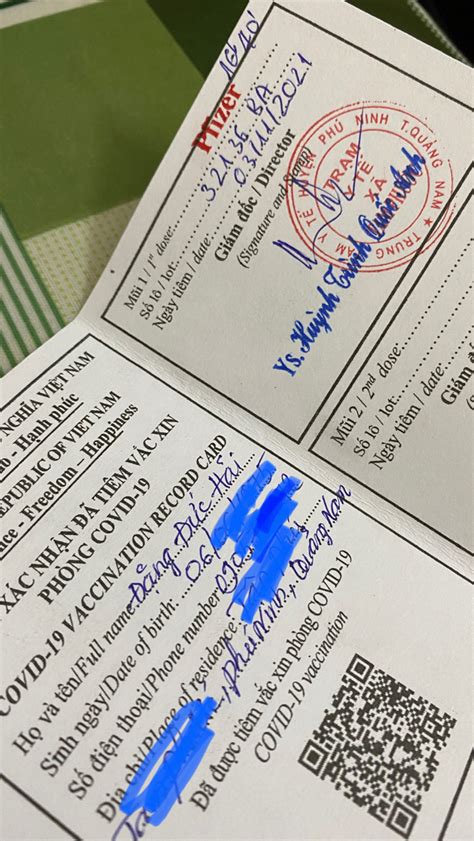 NGHĨA VIỆT NAM
- Hạnh phúc
REPUBLIC OF VIET NAM
- Freedom - Happiness
XÁC NHẬN ĐÃ TIÊM VẮC XIN
PHÒNG COVID-19
COVID-19 VACCINATION RECORD CARD
Họ và tên/Full name: Đặng Đức Hải
Sinh ngày/Date of birth: 06
Số điện thoại/Phone number: 090
Địa chỉ/Place of residence:
Phú Ninh, Quảng Nam
Đã được tiêm vắc xin phòng COVID-19
COVID-19 vaccination
Mũi 1 / 1st dose: Pfizer
Số lô / lot: 32136 BA
Ngày tiêm / date: 03/11/2021
Giám đốc / Director
(Signature and Stamp)
TRUNG TÂM Y TẾ HUYỆN PHÚ NINH T.QUẢNG NAM
TRẠM
Y TẾ
XÃ
YS. Huỳnh Trịnh
Mũi 2 / 2nd dose:
Số lô / lot:
Ngày tiêm / date:
Giám đố
(Signat